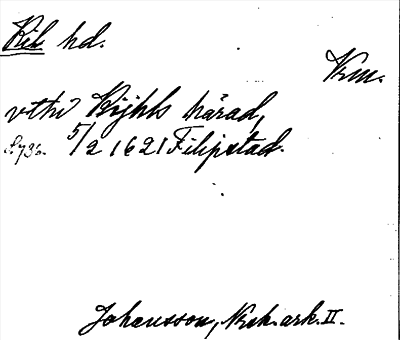 Kil hd.
Vrm.
vthi Kijhls härad,
5/2 1621 Filipstad.
Johansson, Nork. ark. II.